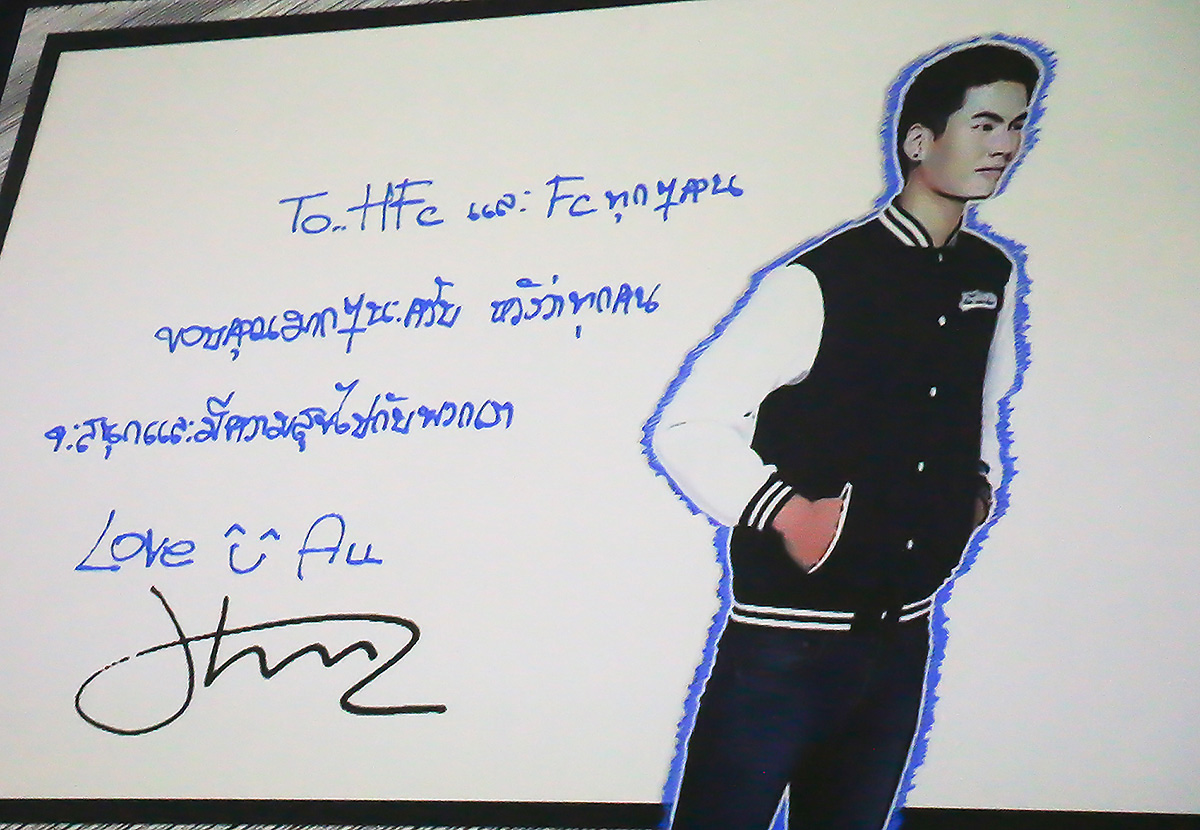 To.. HFc และ Fc ทุกๆคน
ขอบคุณมากๆนะครับ หวังว่าทุกคน
จะสนุกและมีความสุขไปกับพวกเรา
Love U All